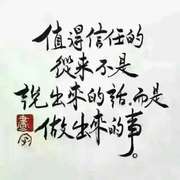 值得信任的
從来不是
說出来的話.而是
做出来的事。